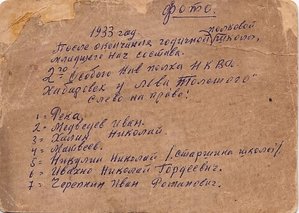 Фото.
1933 год полковой
После окончания годичной школы,
младшего нач состава.
2го Особого полка НКВД
Хабаровск у Льва Толстого
Слева на право:
1 = Река,
2 = Медведев Иван.
3 = Николай.
4 = Матвеев.
5 = Никулин Николай /Старшина школы/
6 = Ивахно Николай Гордеевич.
7 = Черепкин Иван Фотанович.